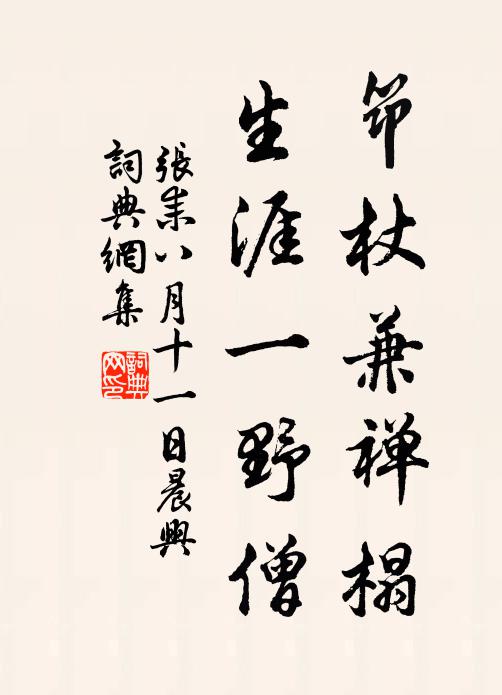 筇杖兼禅榻
生涯一野僧
張耒八月十一日晨興
詞典網集
詞典网印